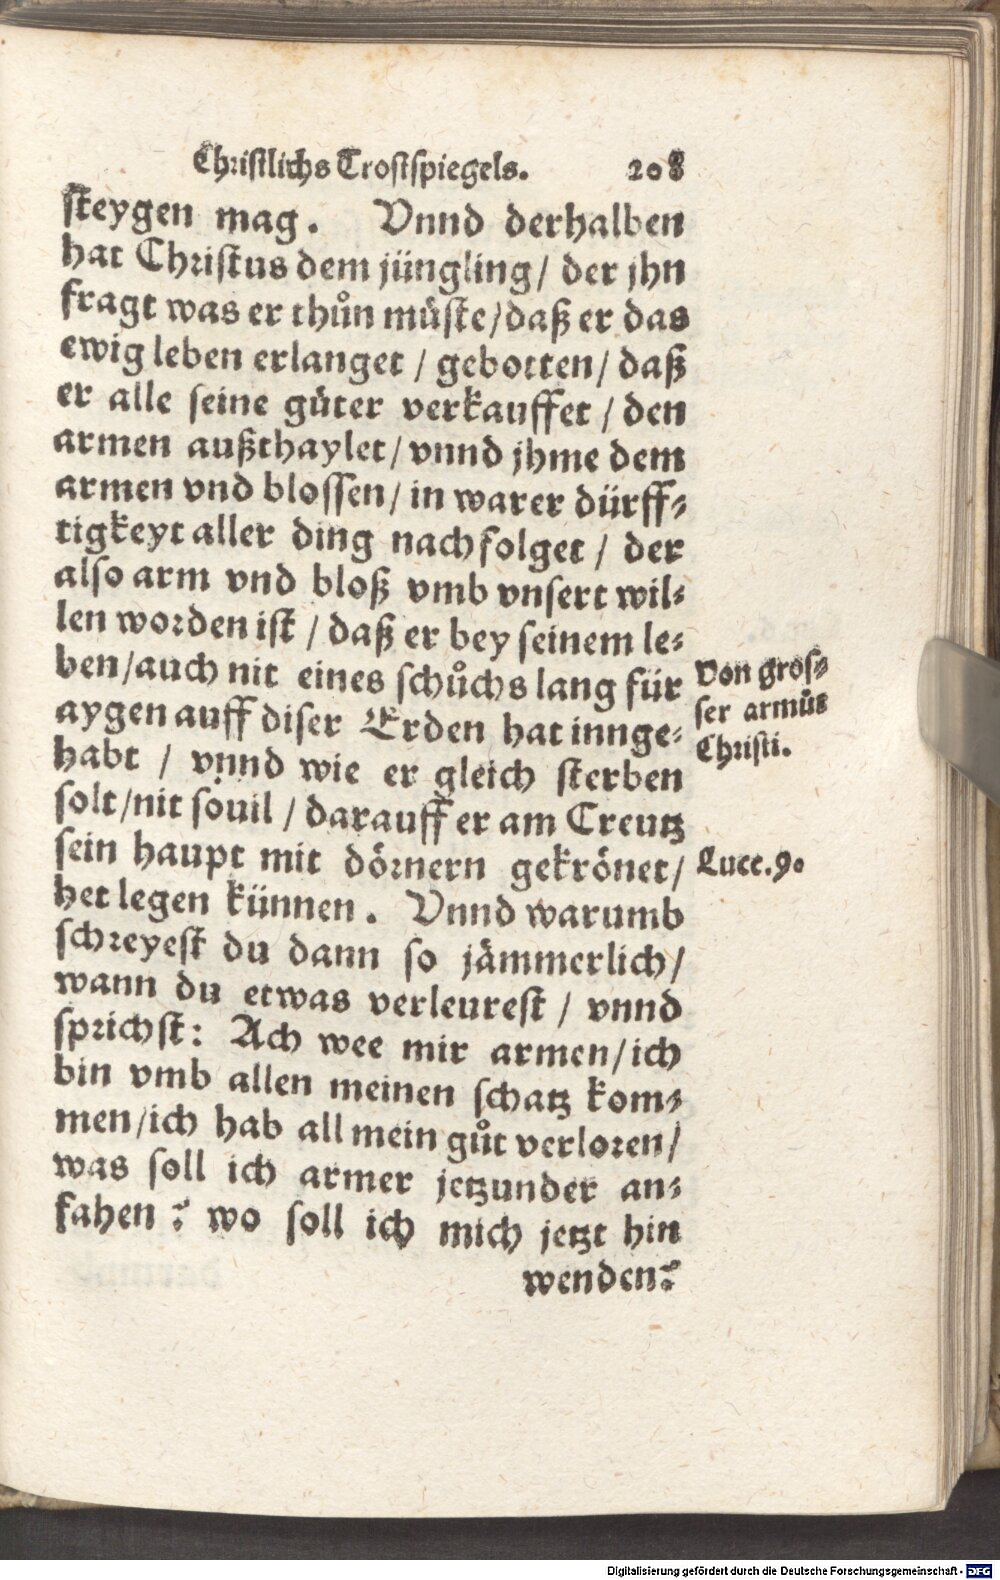 Christlichs Trostspiegels. 208
steygen mag. Vnnd derhalben
hat Christus dem jüngling/ der jhn
fragt was er thůn müste/daß er das
ewig leben erlanget / gebotten/ daß
er alle seine güter verkauffet / den
armen außthaylet/ vnnd jhme dem
armen vnd blossen/ in warer dürff-
tigkeyt aller ding nachfolget / der
also arm vnd bloß vmb vnsert wil-
len worden ist / daß er bey seinem le-
ben/auch nit eines schůchs lang für
aygen auff diser Erden hat innge-
habt / vnnd wie er gleich sterben
solt/nit souil / darauff er am Creutz
sein haupt mit dörnern gekrönet/
het legen künnen. Vnnd warumb
schreyest du dann so jämmerlich/
wann du etwas verleurest / vnnd
sprichst: Ach wee mir armen/ich
bin vmb allen meinen schatz kom-
men/ich hab all mein gůt verloren/
was soll ich armer jetzunder an-
fahen? wo soll ich mich jetzt hin
wenden?
Von gros-
ser armůt
Christi.
Luce.9.
Digitalisierung gefördert durch die Deutsche Forschungsgemeinschaft - DFG